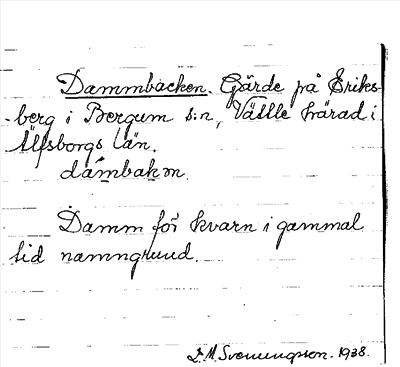 Dammbacken. Gärde på Eriks-
-berg i Bergum s:n, Vättle härad i
Älfsborgs län.
dámbakən
Damm för kvarn i gammal
tid namngrund.
D.M. Svenungsson. 1938.